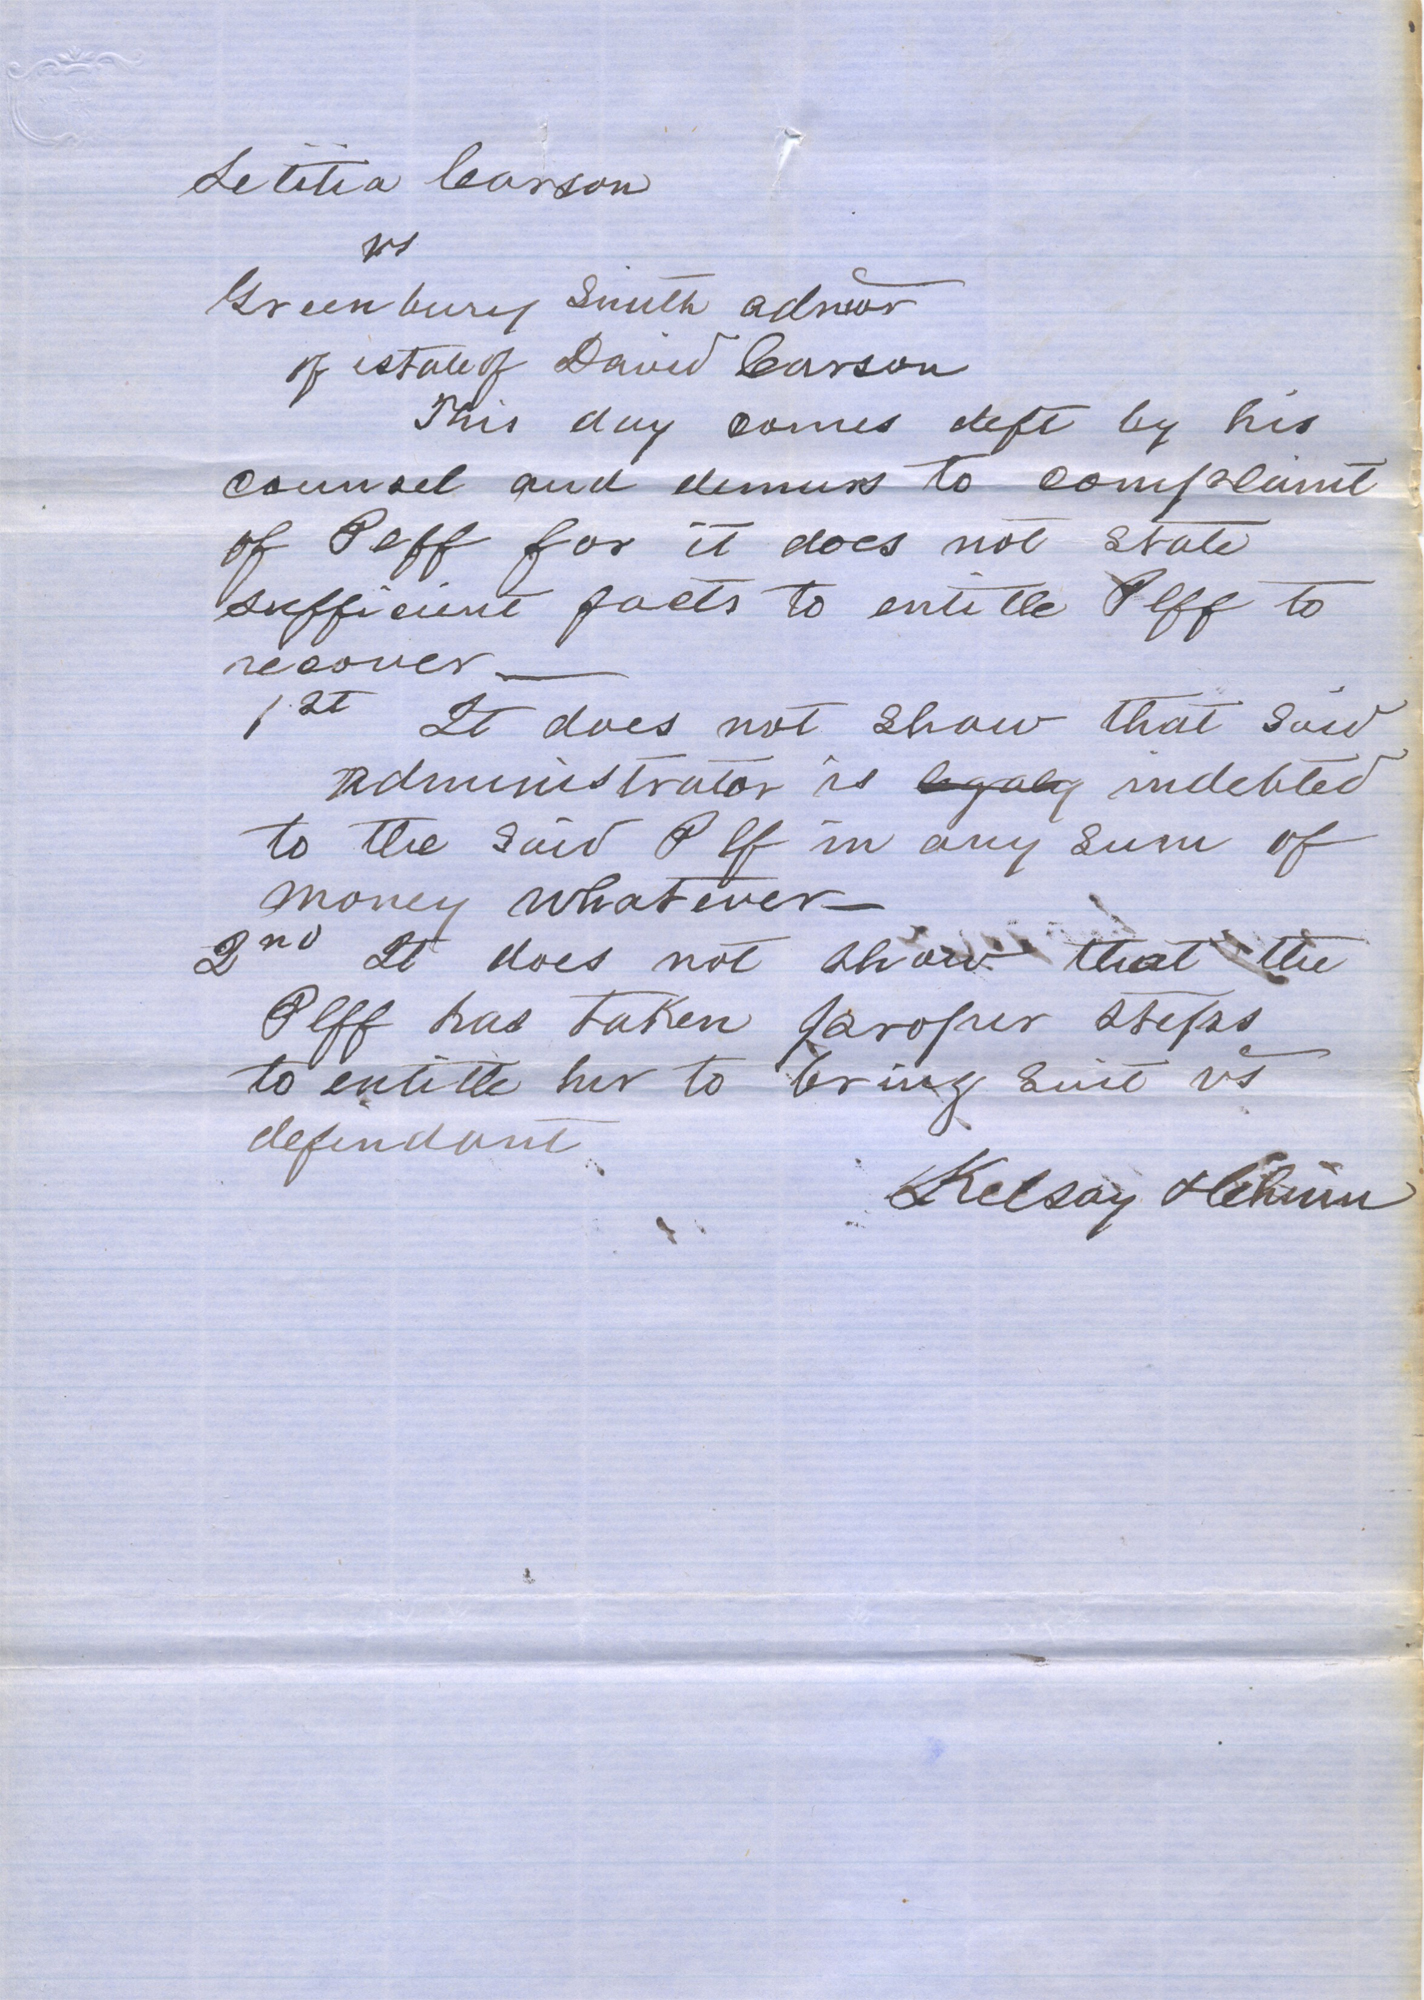 Letitia Carson
vs
Greenbury Smith admor
of estate of David Carson
This day comes deft by his
counsel and demurs to complaint
of Plff for it does not state
sufficient facts to entitle Plff to
recover —
1st It does not show that said
administrator is legaly indebted
to the said Plf in any sum of
money whatever —
2nd It does not show that the
Plff has taken proper steps
to entitle her to bring suit vs
defendant
Kelsay & Chinn